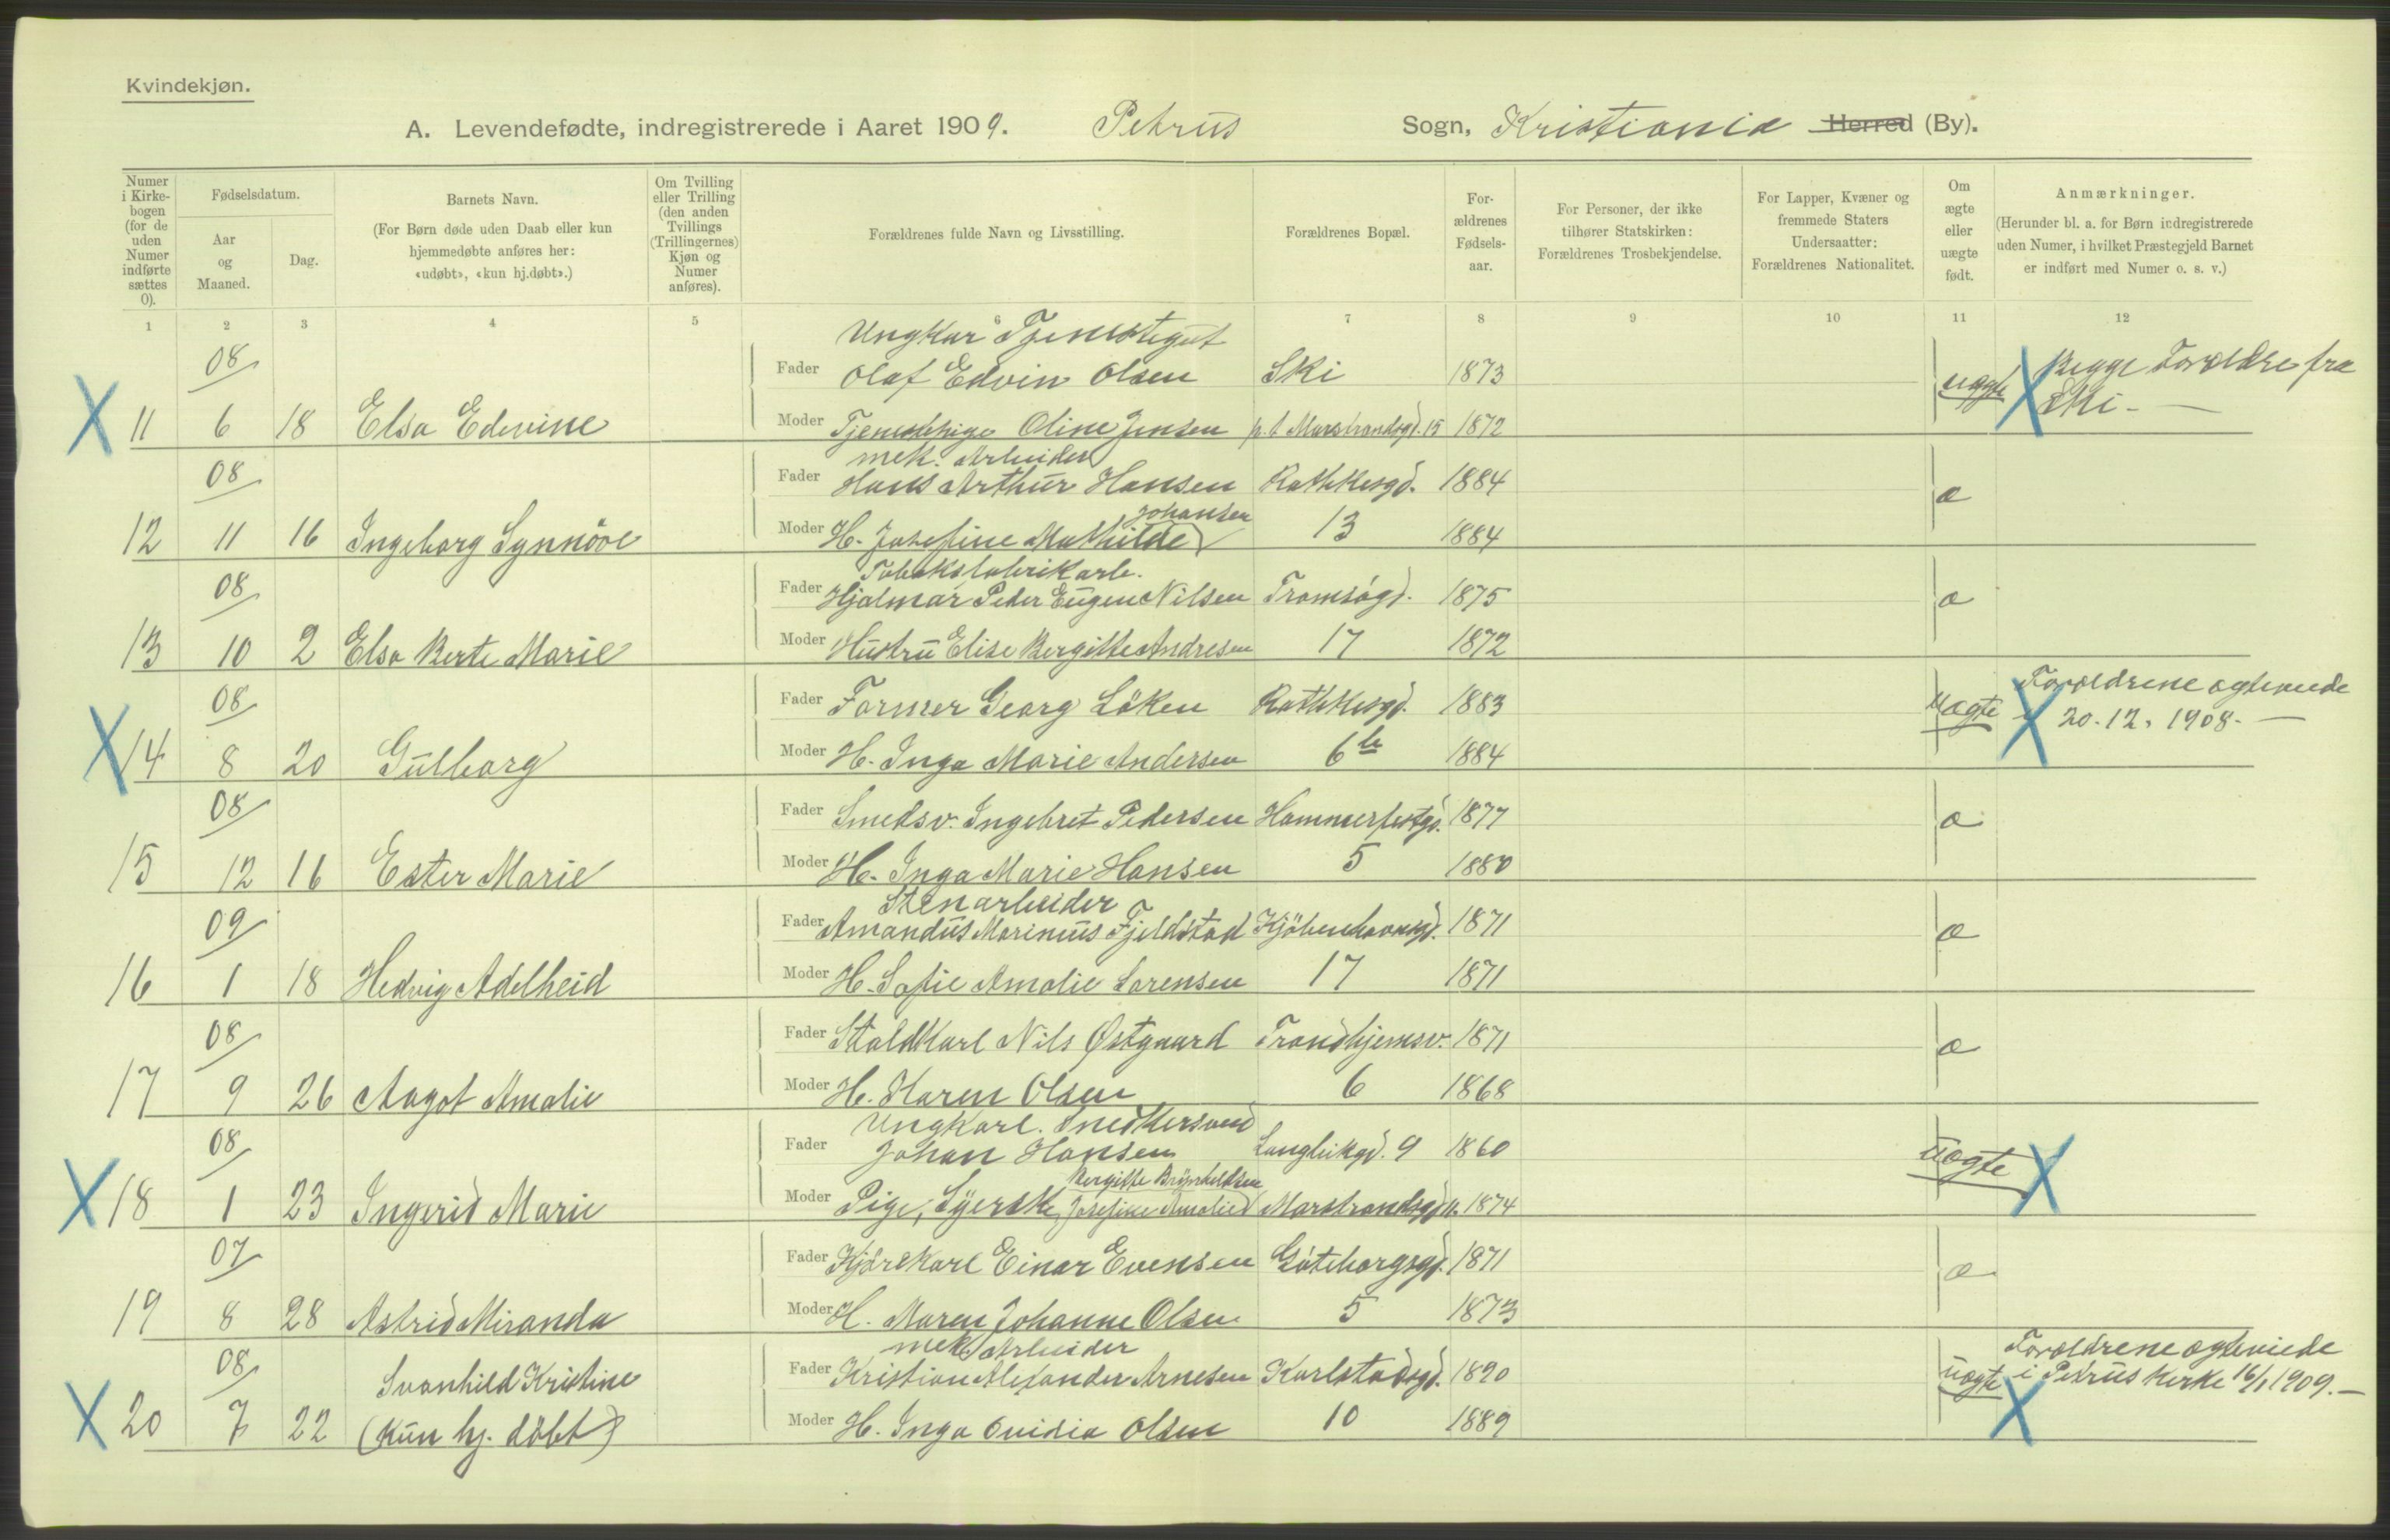 Kvindekjøn.
A. Levendefødte, indregistrerede i Aaret 1909. Petrus Sogn, Kristiania Herred (By).
Numer i Kirke-bogen (for de uden Numer indførte sættes 0).
Fødselsdatum.
Aar og Maaned.
Dag.
Barnets Navn.
(For Børn døde uden Daab eller kun hjemmedøbte anføres her: «udøbt», «kun hj.døbt».)
Om Tvilling eller Trilling (den anden Tvillings (Trillingernes) Kjøn og Numer anføres).
Forældrenes fulde Navn og Livsstilling.
Forældrenes Bopæl.
For-ældrenes Fødsels-aar.
For Personer, der ikke tilhører Statskirken: Forældrenes Trosbekjendelse.
For Lapper, Kvæner og fremmede Staters Undersaatter: Forældrenes Nationalitet.
Om ægte eller uægte født.
Anmærkninger.
(Herunder bl. a. for Børn indregistrerede uden Numer, i hvilket Præstegjeld Barnet er indført med Numer o. s. v.)
1 2 3 4 5 6 7 8 9 10 11 12
Ungkar Tjenestegut
08 Fader Olaf Edvin Olsen Ski 1873 uægte Begge Forældre fra
X 11 6 18 Elsa Edevine Moder Tjenestepige Oline Jensen p.t. Marstrandsgd. 15 1872 X Ski -
mek. Arbeider
08 Fader Hans Arthur Hansen Rathkesgd. 1884 æ
Johansen
12 11 16 Ingeborg Synnöve Moder H. Josefine Mathilde 13 1884
Tobaksfabrikarb.
08 Fader Hjalmar Peder Eugen Nilsen Tromsøgd. 1875 æ
13 10 2 Elsa Berte Marie Moder Hustru Elise Bergitte Andresen 17 1872
08 Fader Former Georg Löken Rathkesgd. 1883 uægte Forældrene ægteviede
X 14 8 20 Gulborg Moder H. Inga Marie Andersen 6b 1884 X 20.12.1908.-
08 Fader Smedsv. Ingebret Pedersen Hammerfestgd. 1877 æ
15 12 16 Ester Marie Moder H. Inga Marie Hansen 5 1880
Stenarbeider
09 Fader Amandus Marinius Fjeldstad Kjöbenhavnsgd. 1871 æ
16 1 18 Hedvig Adelheid Moder H. Sofie Amalie Sorensen 17 1871
08 Fader Staldkarl Nils Østgaard Trondhjemsv. 1871 æ
17 9 26 Aagot Amalie Moder H. Karen Olsen 6 1868
Ungkarl. Snedkersvend
08 Fader Johan Hansen Langleikgd. 9 1860 uægte
Bergitte Brynhildsen
X 18 1 23 Ingerid Marie Moder Pige, Syerske Josefine Amalie Marstrandsgd. 11. 1874 X
07 Fader Kjörekarl Einar Evensen Göteborgsgd. 1871 æ
19 8 28 Astrid Miranda Moder H. Maren Johanne Olsen 5 1873
mek. Arbeider
08 Svanhild Kristine Fader Kristian Alexander Arnesen Karlstadsgd. 1890 uægte Forældrene ægteviede
i Petrus Kirke 16/1 1909.-
X 20 7 22 (Kun hj. döbt) Moder H. Inga Ovidia Olsen 10 1889 X